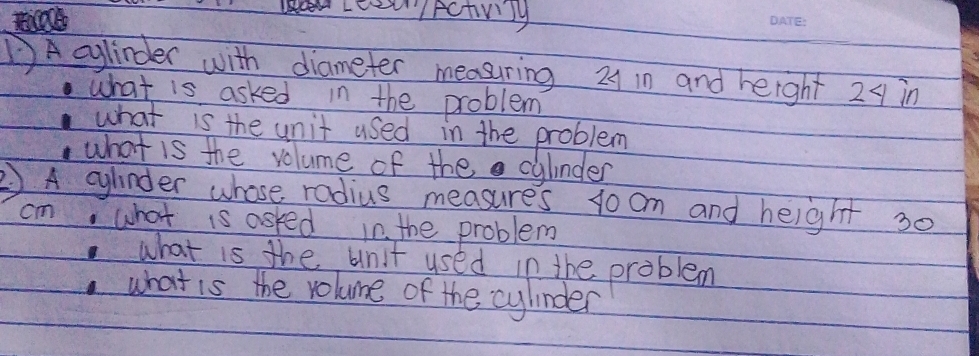 Lesson/Activity
DATE:
1.) A cylinder with diameter measuring 24 in and height 24 in
• what is asked in the problem
• what is the unit used in the problem
• what is the volume of the cylinder
2.) A cylinder whose radius measures 40 cm and height 30
cm • what is asked in the problem
• what is the unit used in the problem
• what is the volume of the cylinder